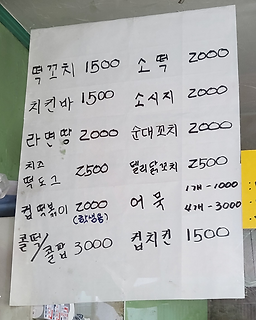 떡꼬치 1500
소떡 2000
치킨바 1500
소시지 2000
라면땅 2000
순대꼬치 2000
치즈
떡도그 2500
델리닭꼬치 2500
컵떡볶이 2000
어묵 1개-1000
4개-3000
콜떡/콜팝 3000
컵치킨 1500